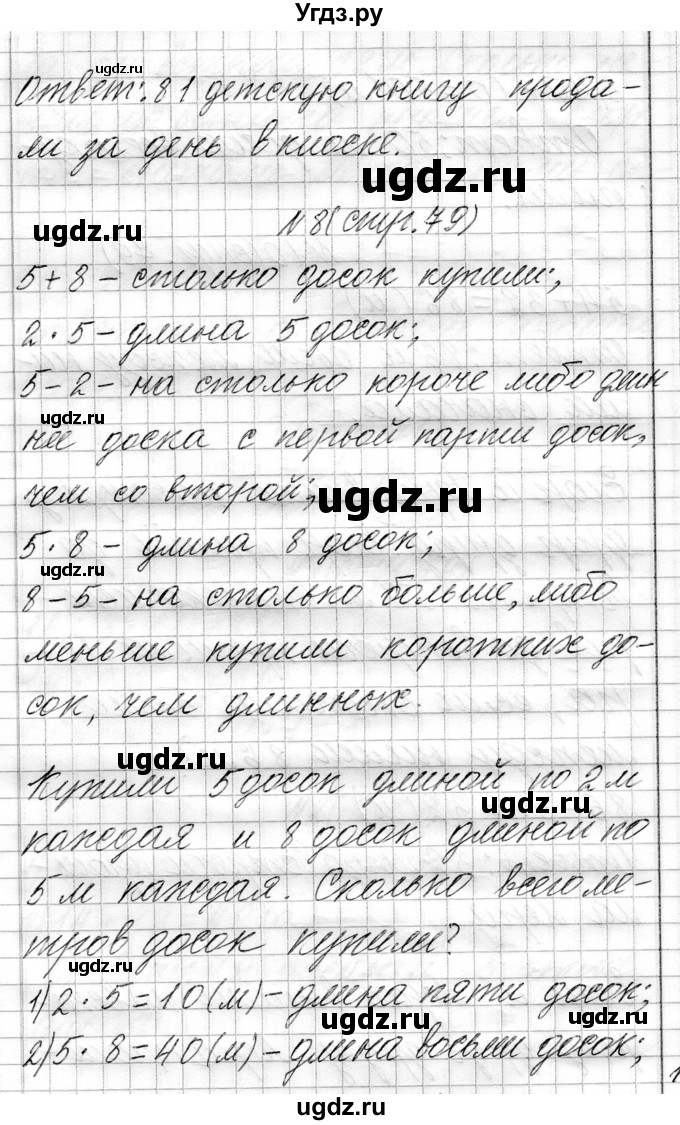 Угдз.ру
ugdz.ru
Ответ: 81 детскую книгу прода-
ли за день в киоске.
ugdz.ru
ugdz.ru
№ 8 (стр. 79)
5+8 – столько досок купили;
2 · 5 – длина 5 досок;
5 – 2 – на столько короче либо длин
ugdz.ru
нее доска с первой партии досок,
чем со второй;
ugdz.ru
5 · 8 – длина 8 досок;
ugdz.ru
8 – 5 – на столько больше, либо
меньше купили коротких до-
сок, чем длинных.
ugdz.ru
Купили 5 досок длиной по 2 м
ugdz.ru
каждая и 8 досок длиной по
5 м каждая. Сколько всего ме-
тров досок купили?
ugdz.ru
1) 2 · 5 = 10 (м) – длина пяти досок;
ugdz.ru
2) 5 · 8 = 40 (м) – длина восьми досок;
ugdz.ru